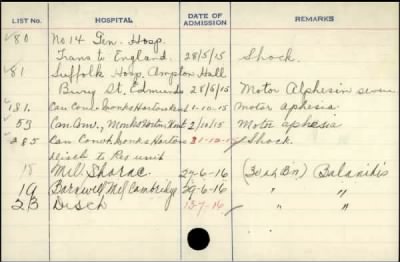 LIST No. HOSPITAL DATE OF ADMISSION REMARKS
80 No 14 Gen. Hosp.
Trans to England. 28/5/15 Shock.
81 Suffolk Hosp. Ampton Hall
Bury St. Edmunds 28/5/15 Motor
181. Can. Con. Monks Horton 1-10-15 Motor aphesia.
53 Can. Conv. Monks Horton 2/10/15 Motor aphesia
285 Can Conv Monks Horton 31-12-15 Shock.
disch to Res unit
18 Mil. Shorne. 27-6-16 Balanitis
19 Barnwell Mil Cambridge 29-6-16 " "
23 Disch 13-7-16 " "